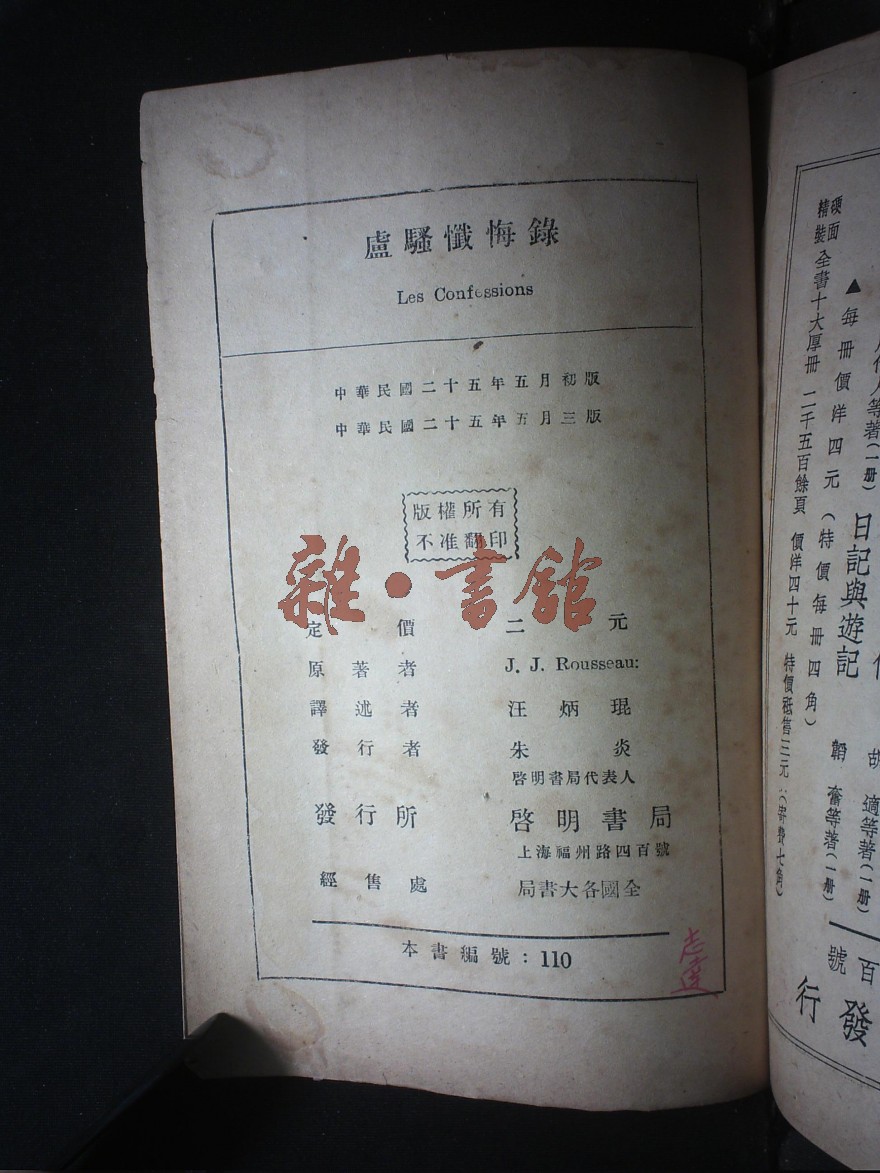 盧騷懺悔錄
Les Confessions
中華民國二十五年五月初版
中華民國二十五年五月三版
版權所有
不准翻印
雜·書館
定價 二元
原著者 J. J. Rousseau:
譯述者 汪炳琨
發行者 朱炎
啓明書局代表人
發行所 啓明書局
上海福州路四百號
經售處 局書大各國全
本書編號：110
志達
硬面精裝 全書十大厚冊 二千五百餘頁 價洋四十元 特價祗售三元 (寄費七角)
▲每冊價洋四元(特價每冊四角)
人等著(一册)
日記與遊記
胡適等著(一册)
韜奮等著(一册)
百號
發行